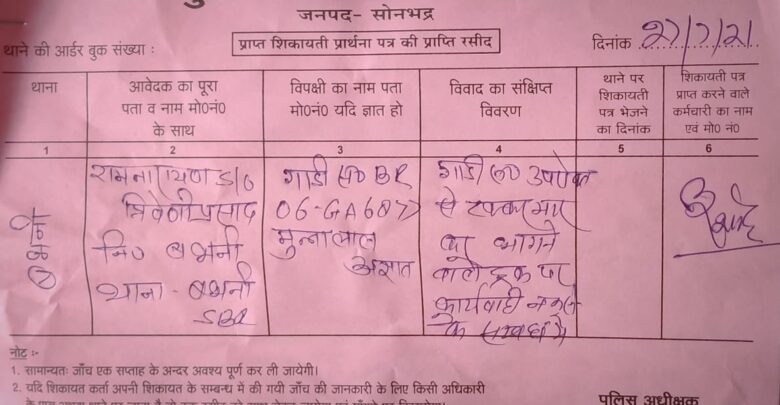 जनपद- सोनभद्र
थाने की आर्डर बुक संख्या :
प्राप्त शिकायती प्रार्थना पत्र की प्राप्ति रसीद
दिनांक 27/7/21
थाना
आवेदक का पूरा
पता व नाम मो0नं0
के साथ
विपक्षी का नाम पता
मो0नं0 यदि ज्ञात हो
विवाद का संक्षिप्त
विवरण
थाने पर
शिकायती
पत्र भेजने
का दिनांक
शिकायती पत्र
प्राप्त करने वाले
कर्मचारी का नाम
एवं मो0 नं0
1 2 3 4 5 6
बभनी
रामनारायण S/o
त्रिवेणीप्रसाद
नि0 बभनी
थाना - बभनी
SBR
गाडी सं0 BR
06-GA6877
मुन्नालाल
अज्ञात
गाडी सं0 उपरोक्त
से टक्कर मार
कर भागने
वाले ट्रक पर
कार्यवाही न करने
के सम्बन्ध में
नोट :-
1. सामान्यतः जाँच एक सप्ताह के अन्दर अवश्य पूर्ण कर ली जायेगी।
2. यदि शिकायत कर्ता अपनी शिकायत के सम्बन्ध में की गयी जाँच की जानकारी के लिए किसी अधिकारी
पुलिस अधीक्षक